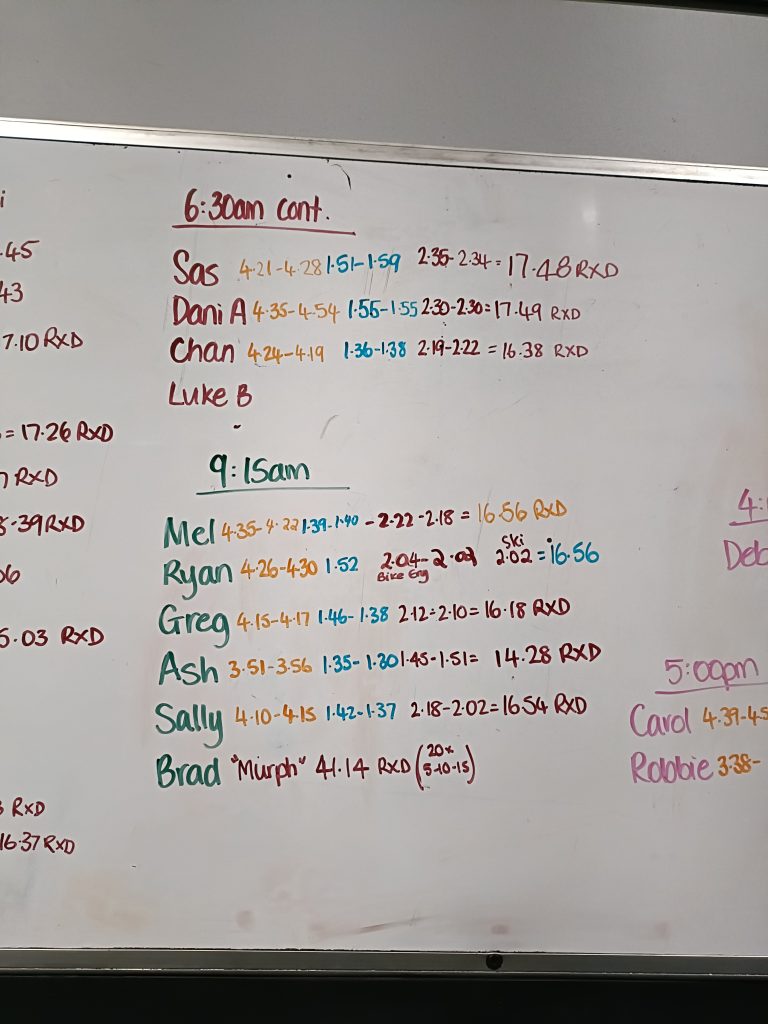 i
.45
43
7.10 RXD
= 17.26 RXD
7 RXD
.39 RXD
56
5.03 RXD
3 RXD
16.37 RXD
6:30am cont.
Sas 4.21-4.28 1.51-1.59 2.35-2.34 = 17.48 RXD
Dani A 4.35-4.54 1.55-1.55 2.30-2.30 = 17.49 RXD
Chan 4.24-4.19 1.36-1.38 2.19-2.22 = 16.38 RXD
Luke B
9:15am
Mel 4.35-4.22 1.39-1.40 - 2.22-2.18 = 16.56 RXD
Ski
Ryan 4.26-4.30 1.52 2.04-2.02 2.02 = 16.56
Bike Erg
Greg 4.15-4.17 1.46-1.38 2.12-2.10 = 16.18 RXD
Ash 3.51-3.56 1.35-1.30 1.45-1.51 = 14.28 RXD
Sally 4.10-4.15 1.42-1.37 2.18-2.02 = 16.54 RXD
Brad "Murph" 41.14 RXD (20x 5-10-15)
4:
Deb
5:00pm
Carol 4.39-4.5
Robbie 3.38-